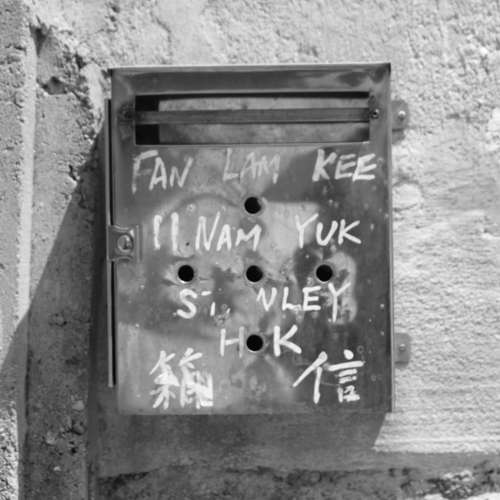 FAN LAM KEE
11 NAM YUK
ST NLEY
H K
信